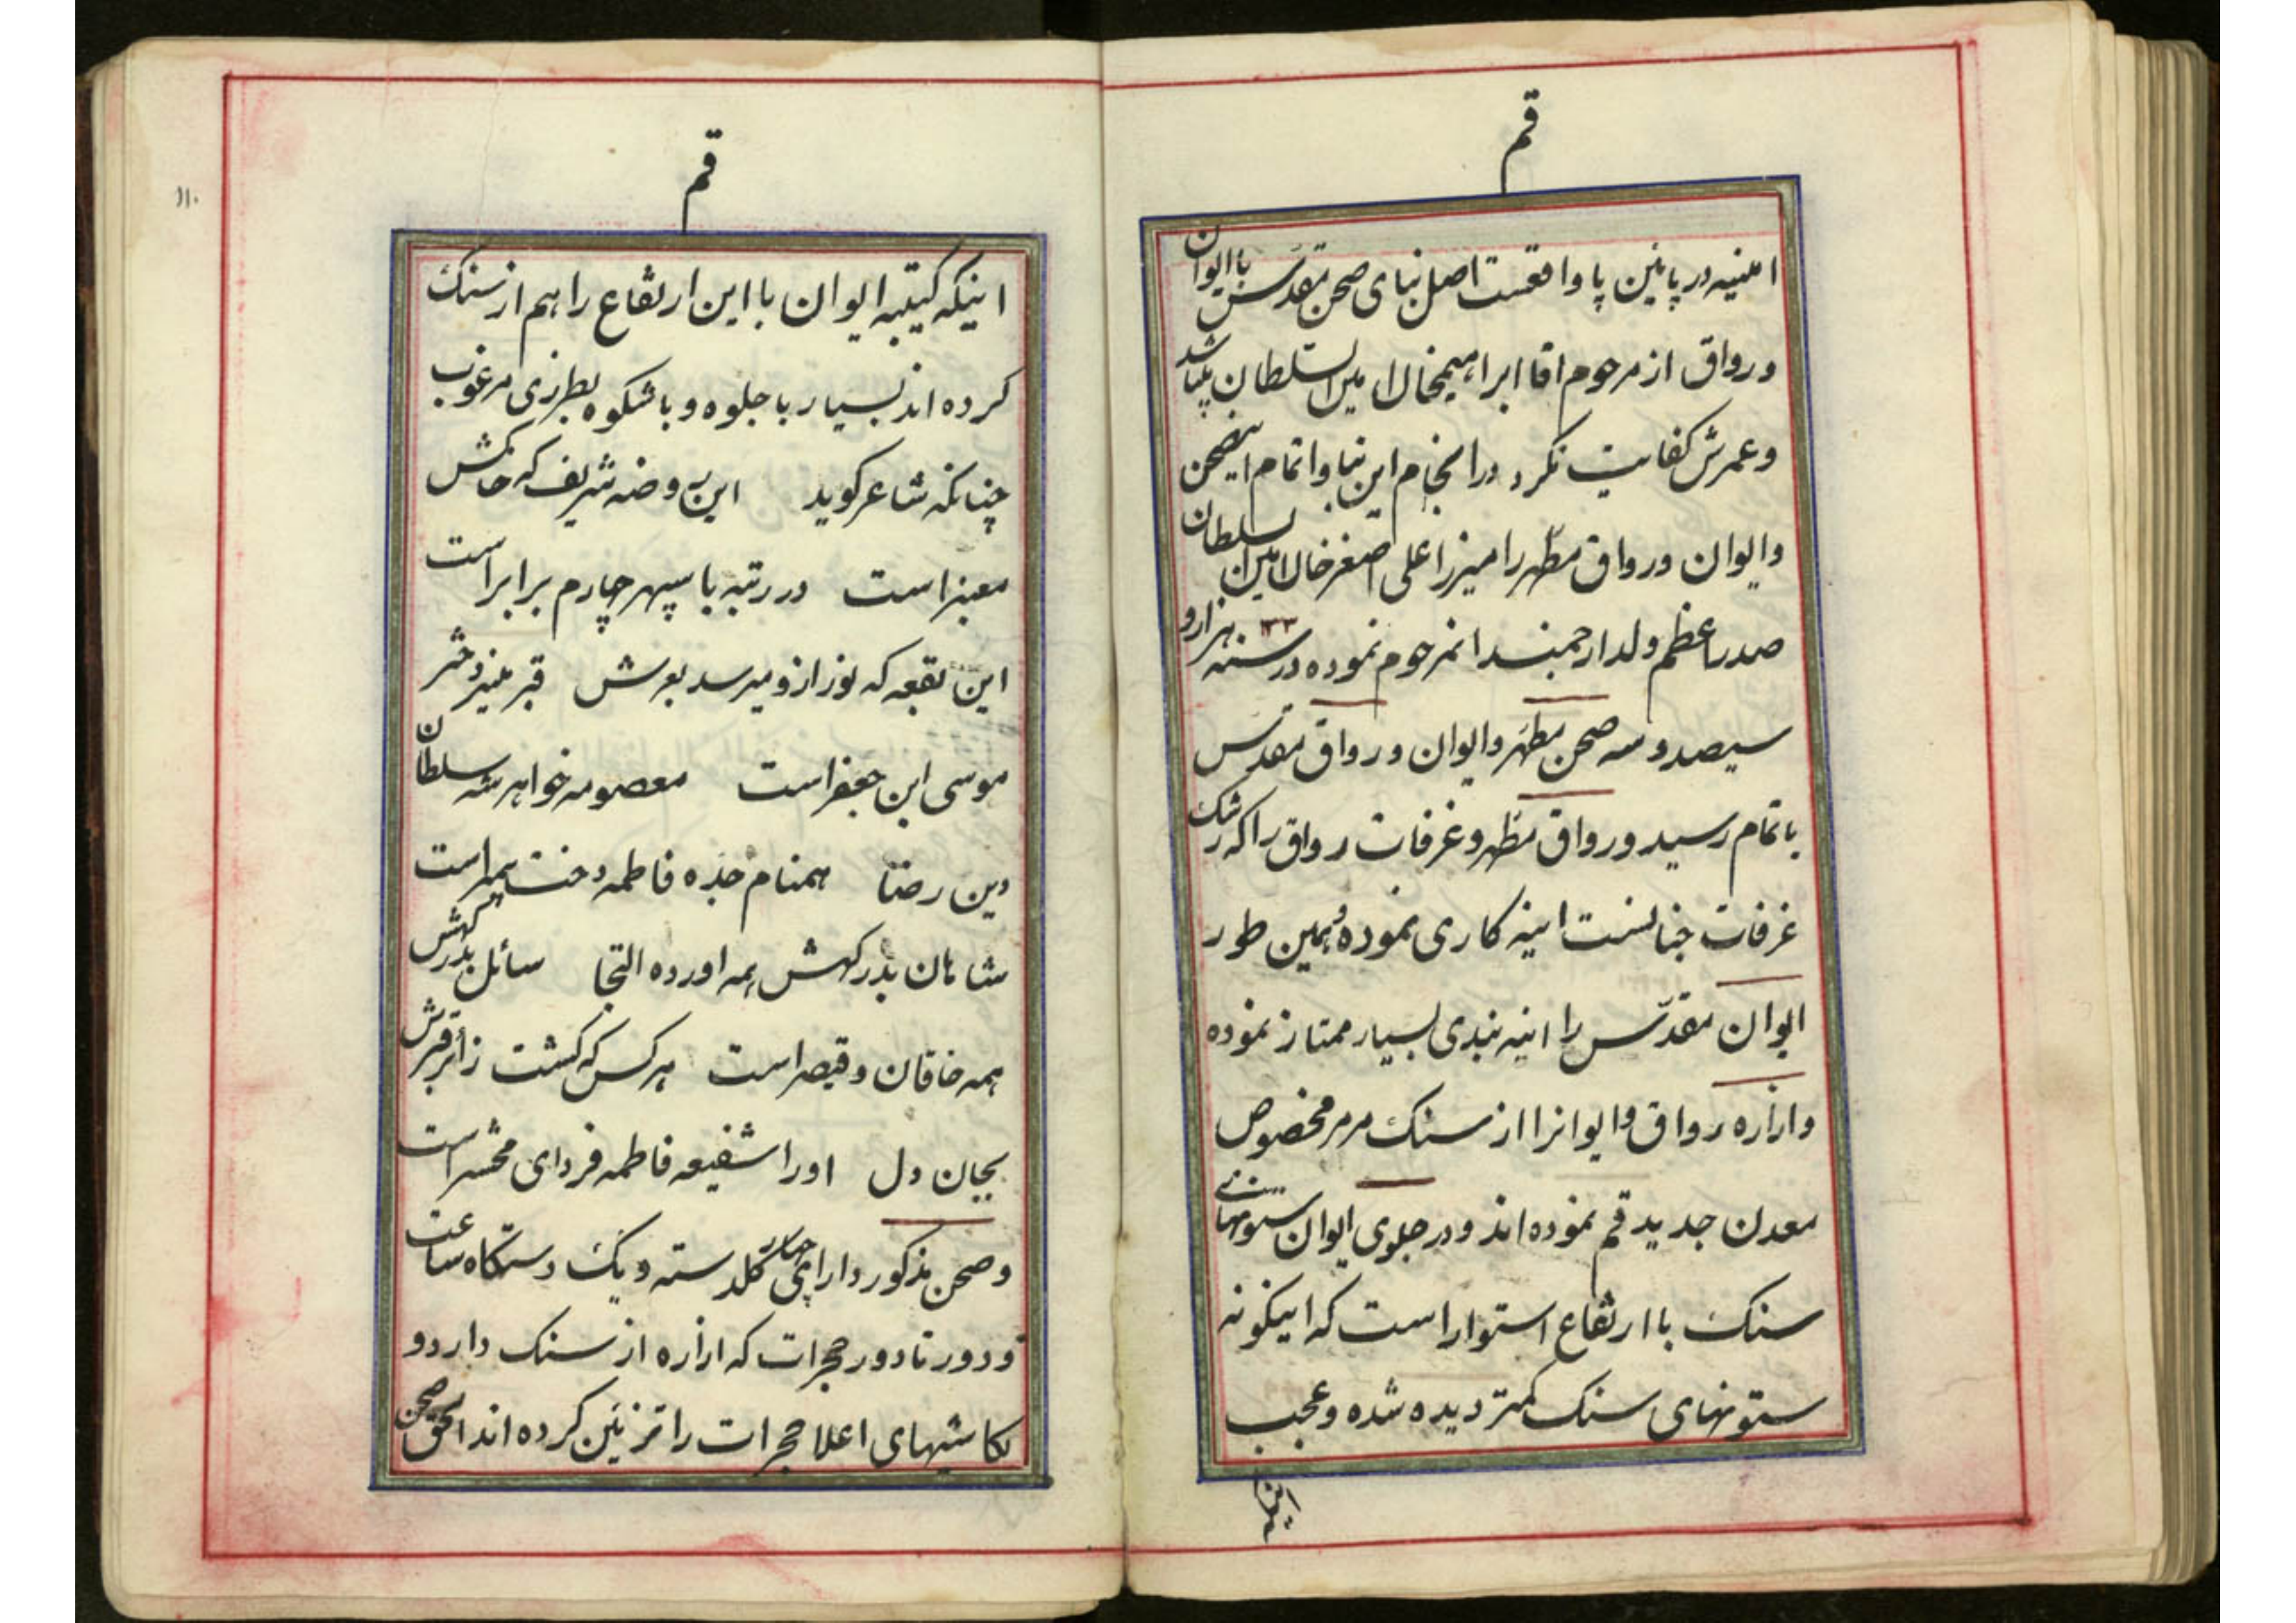 قم
امینیه در پائین پا واقعست اصل بنای صحن مقدس با ایوان
و رواق از مرحوم اقا ابراهیمخان امین السلطان میباشد
و عمرش کفایت نکرد در انجام این بنا و اتمام اینصحن
و ایوان و رواق مطهر را میرزا علی اصغرخان امین السلطان
صدراعظم ولد ارجمند انمرحوم نموده در سنه ۱۳۰۳ هزار و
سیصد و سه صحن مطهر و ایوان و رواق مقدس
باتمام رسید و رواق مطهر و غرفات رواق را که رشک
غرفات جنانست اینه کاری نموده و همین طور
ایوان مقدّس را اینه بندی بسیار ممتاز نموده
و ازاره رواق و ایوانرا از سنک مرمر مخصوص
معدن جدید قم نموده اند و در جلوی ایوان ستونهای
سنک با ارتفاع استوار است که اینکونه
ستونهای سنک کمتر دیده شده و عجب
اینکه
قم
۱۱۰
اینکه کتیبه ایوان با این ارتفاع را هم از سنک
کرده اند بسیار با جلوه و با شکوه بطرزی مرغوب
چنانکه شاعر کوید این روضه شریف که خاکش
معنبر است در رتبه با سپهر چارم برابر است
این بقعه که نور ازو میرسد بعرش قبر منیر دختر
موسی ابن جعفر است معصومه خواهر شه سلطان
دین رضا همنام جده فاطمه دخت پیمبر است
شاهان بدرکهش همه اورده التجا سائل بدرکهش
همه خاقان و قیصر است هر کس که کشت زائر قبرش
بجان و دل اورا شفیعه فاطمه فردای محشر است
و صحن مذکور دارای چهار کلدسته و یک دستکاه ساعت
و دور تا دور حجرات که ازاره از سنک دارد و
بکاشیهای اعلا حجرات را تزئین کرده اند الحق صحن